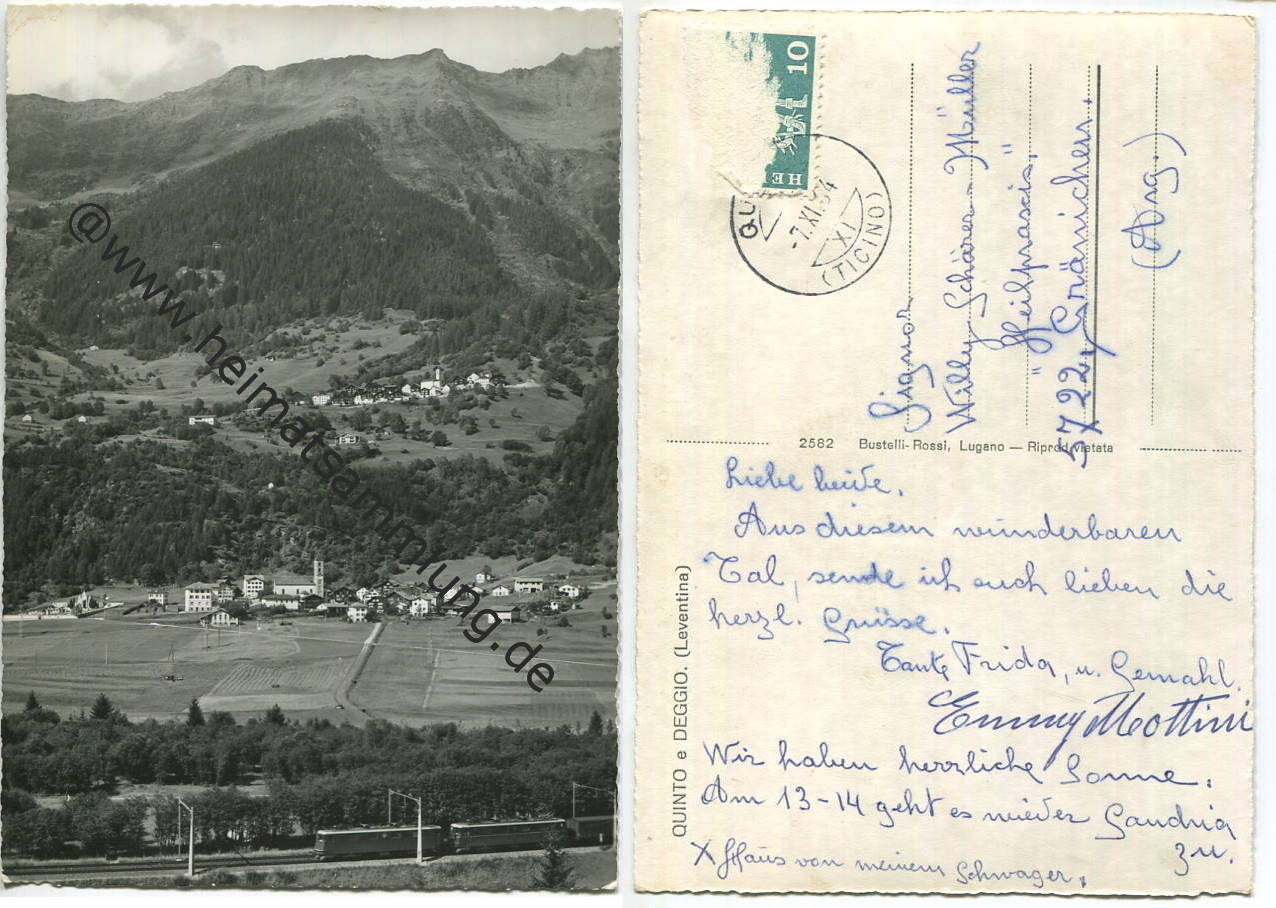 @www.heimatsammlung.de
10
HE
QU
-7.XI.64
XI
(TICINO)
Signor
Willy Schärer-Müller
"Heilpraxis"
5722, Gränichen.
(Arg.)
2582 Bustelli-Rossi, Lugano — Riprod. vietata
QUINTO e DEGGIO. (Leventina)
Liebe beide.
Aus diesem wunderbaren
Tal, sende ich euch lieben die
herzl. Grüsse.
Tante Frida, u. Gemahl.
Emmy Mottini
Wir haben herrliche Sonne.
Am 13-14 geht es wieder Gandria
zu.
X Haus von meinem Schwager.